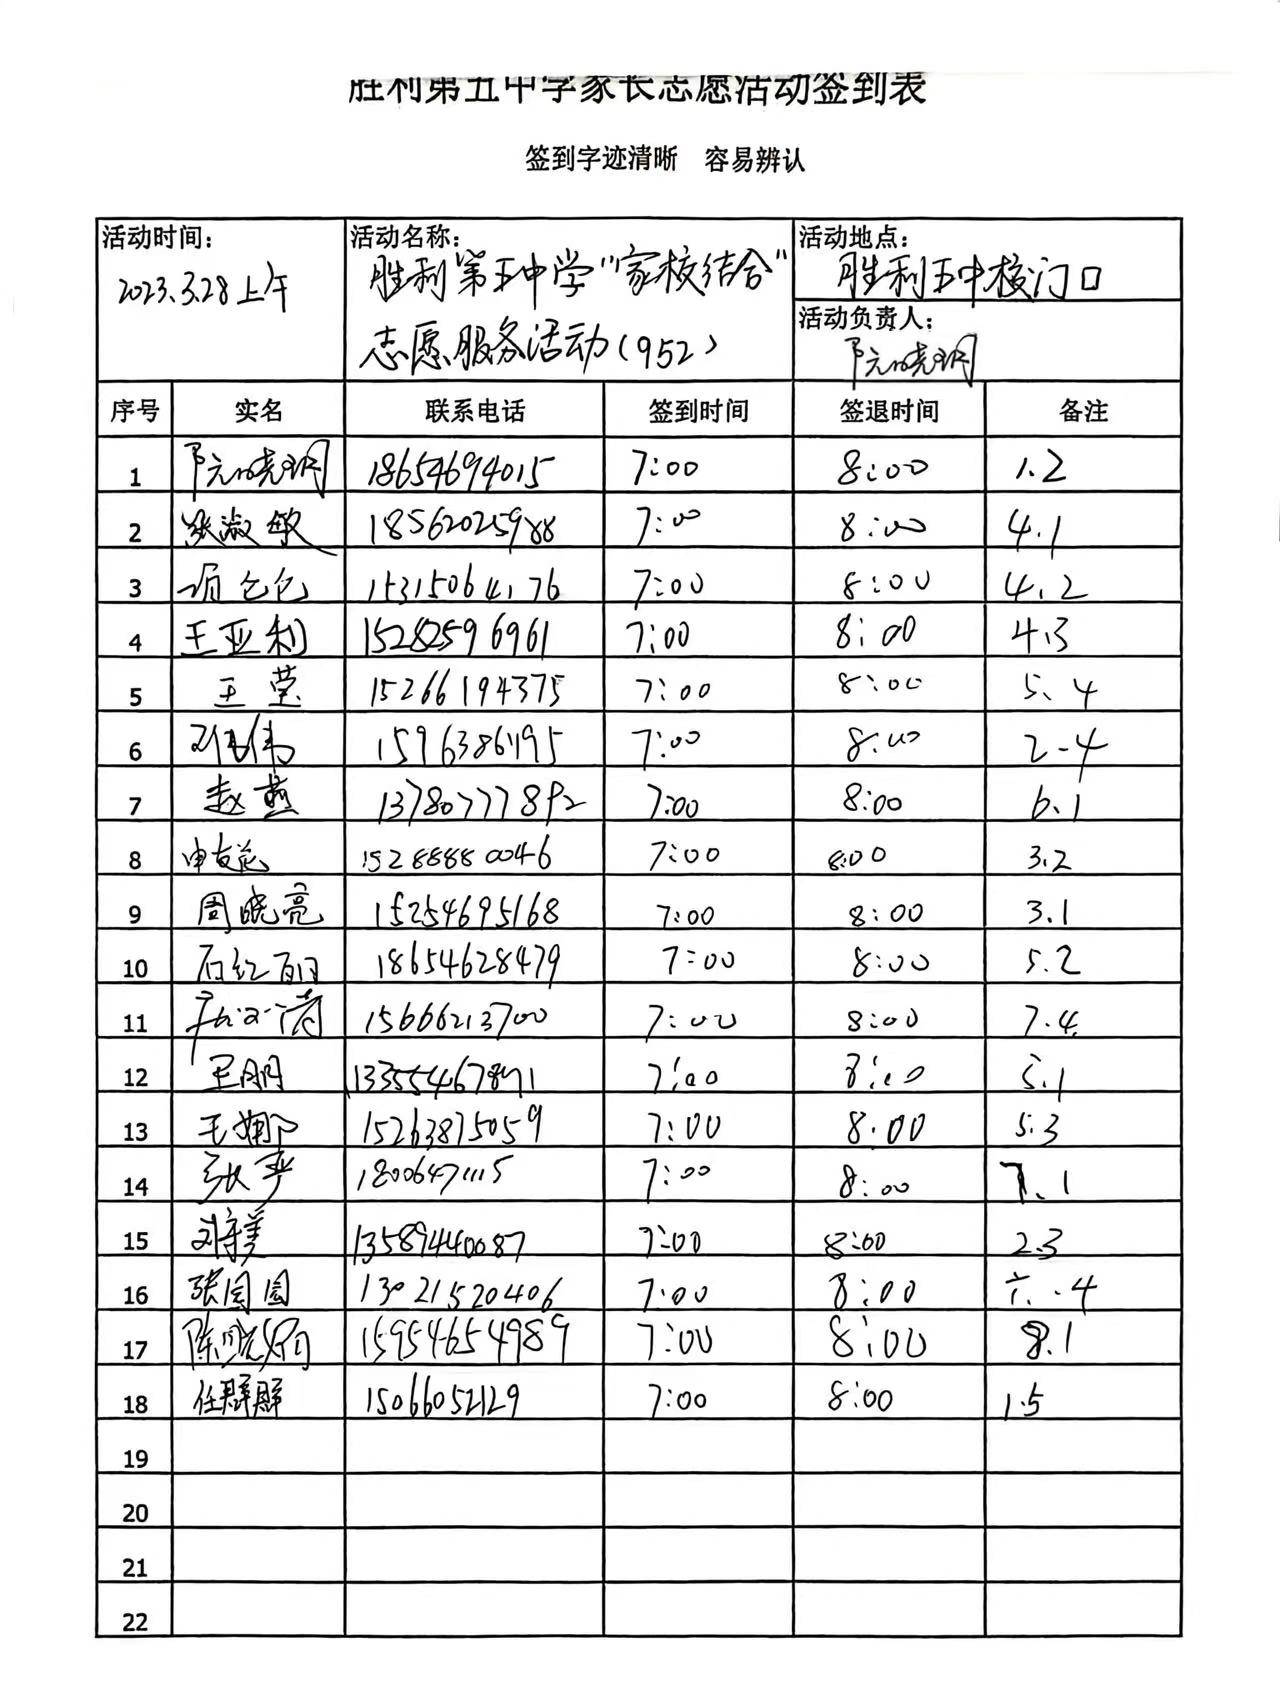 胜利第五中学家长志愿活动签到表
签到字迹清晰 容易辨认
活动时间: 活动名称: 活动地点:
2023.3.28上午 胜利第五中学“家校结合” 胜利五中校门口
志愿服务活动(952) 活动负责人:
阮晓玥
序号 实名 联系电话 签到时间 签退时间 备注
1 阮晓玥 18654694015 7:00 8:00 1.2
2 张淑敏 18562025988 7:00 8:00 4.1
3 15315064176 7:00 8:00 4.2
4 王亚利 15282596961 7:00 8:00 4.3
5 王莹 15266194375 7:00 8:00 5.4
6 7:00 8:00 2-4
7 赵燕 13780777892 7:00 8:00 6.1
8 15288880046 7:00 8:00 3.2
9 周晓亮 15254695168 7:00 8:00 3.1
10 石红百 18654628479 7:00 8:00 5.2
11 15666213700 7:00 8:00 7.4
12 王朋 7:00 8:00 5.1
13 王娜 15263875059 7:00 8:00 5.3
14 18006471115 7:00 8:00 7.1
15 13589440087 7:00 8:00 2.3
16 张园园 13021520406 7:00 8:00
17 15954654989 7:00 8:00 8.1
18 任群群 15066052129 7:00 8:00 1.5
19
20
21
22